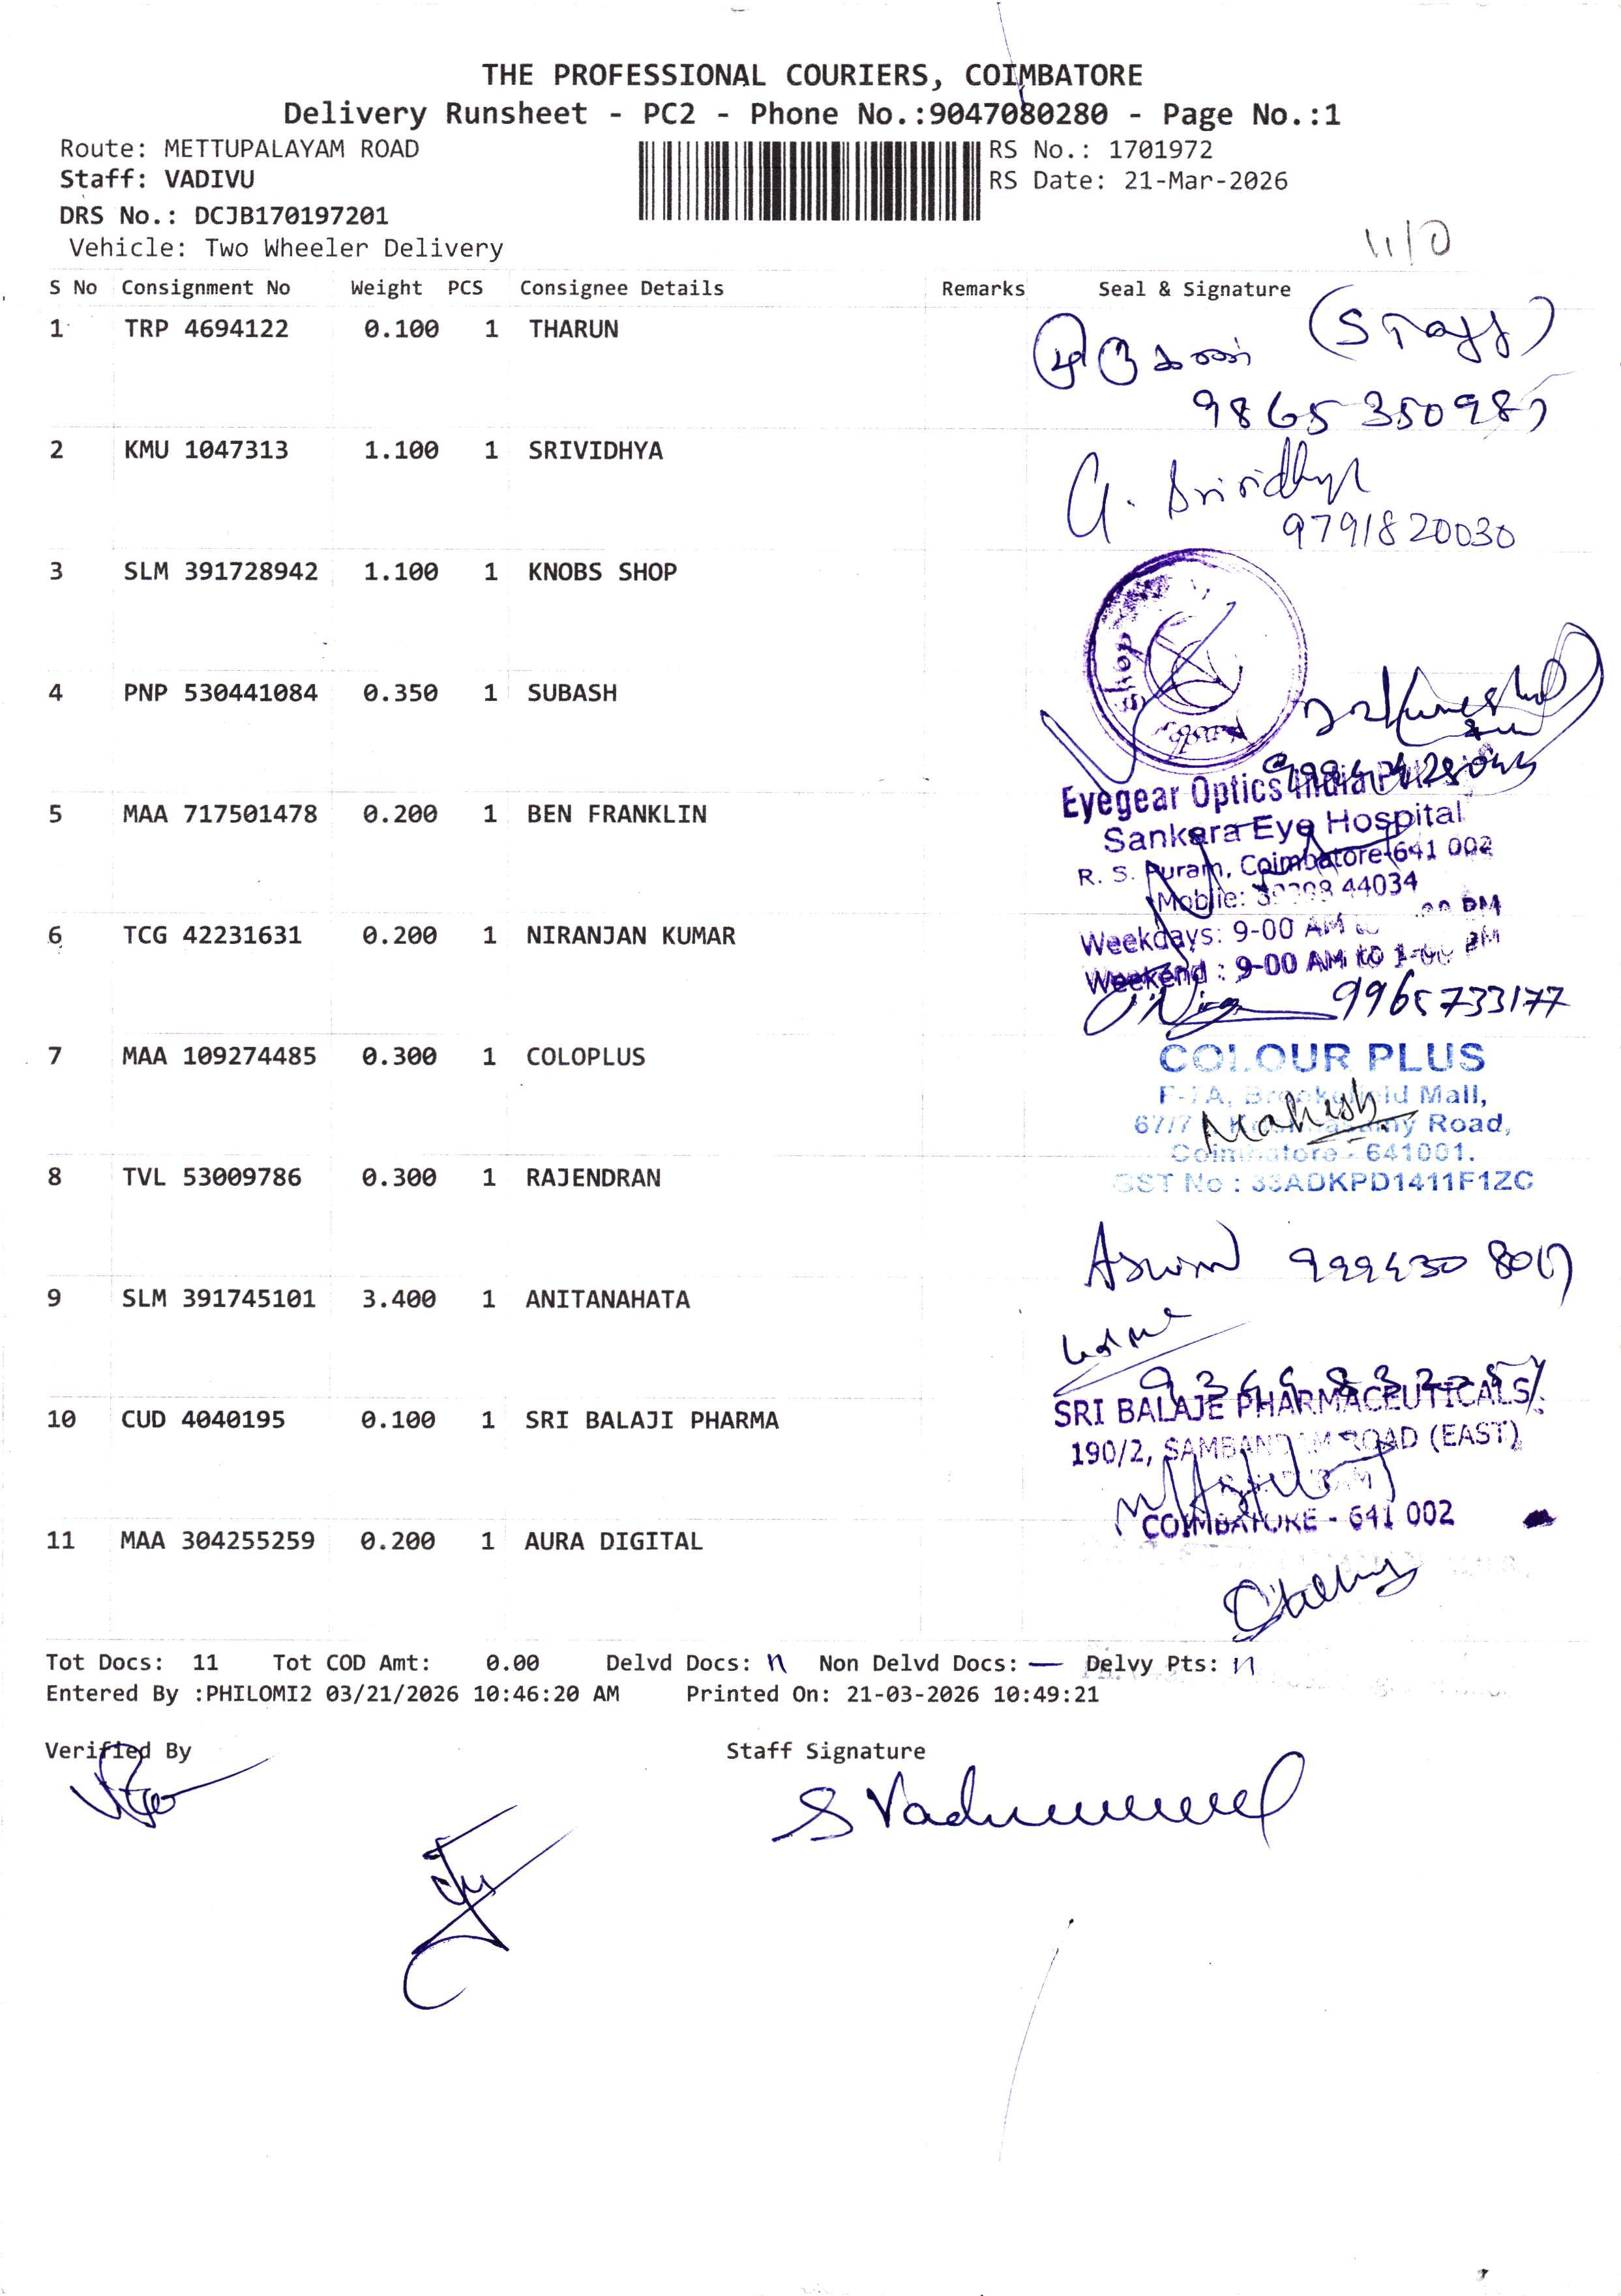 THE PROFESSIONAL COURIERS, COIMBATORE
Delivery Runsheet - PC2 - Phone No.:9047080280 - Page No.:1
Route: METTUPALAYAM ROAD
RS No.: 1701972
Staff: VADIVU
RS Date: 21-Mar-2026
DRS No.: DCJB170197201
Vehicle: Two Wheeler Delivery
11/0
S No Consignment No Weight PCS Consignee Details Remarks Seal & Signature
1 TRP 4694122 0.100 1 THARUN
முருகன் (Staff)
9865350987
2 KMU 1047313 1.100 1 SRIVIDHYA
G. Srividhya
9791820030
3 SLM 391728942 1.100 1 KNOBS SHOP
Shop
4 PNP 530441084 0.350 1 SUBASH
Eyegear Optics India
5 MAA 717501478 0.200 1 BEN FRANKLIN
Sankara Eye Hospital
R. S. Puram, Coimbatore-641 002
Mobile: 44034
6 TCG 42231631 0.200 1 NIRANJAN KUMAR
Weekdays: 9-00 AM PM
Weekend : 9-00 AM to 1-00 PM
9965733177
7 MAA 109274485 0.300 1 COLOPLUS
COLOUR PLUS
F-7A, Brookefield Mall,
67/7 Road,
Mahesh
Coimbatore - 641001.
8 TVL 53009786 0.300 1 RAJENDRAN
GST No : 33ADKPD1411F1ZC
Aswin
9 SLM 391745101 3.400 1 ANITANAHATA
10 CUD 4040195 0.100 1 SRI BALAJI PHARMA
SRI BALAJE PHARMACEUTICALS
190/2, SAMBANDAM ROAD (EAST)
COIMBATORE - 641 002
11 MAA 304255259 0.200 1 AURA DIGITAL
Tot Docs: 11 Tot COD Amt: 0.00 Delvd Docs: 11 Non Delvd Docs: — Delvy Pts: 11
Entered By :PHILOMI2 03/21/2026 10:46:20 AM Printed On: 21-03-2026 10:49:21
Verified By
Staff Signature